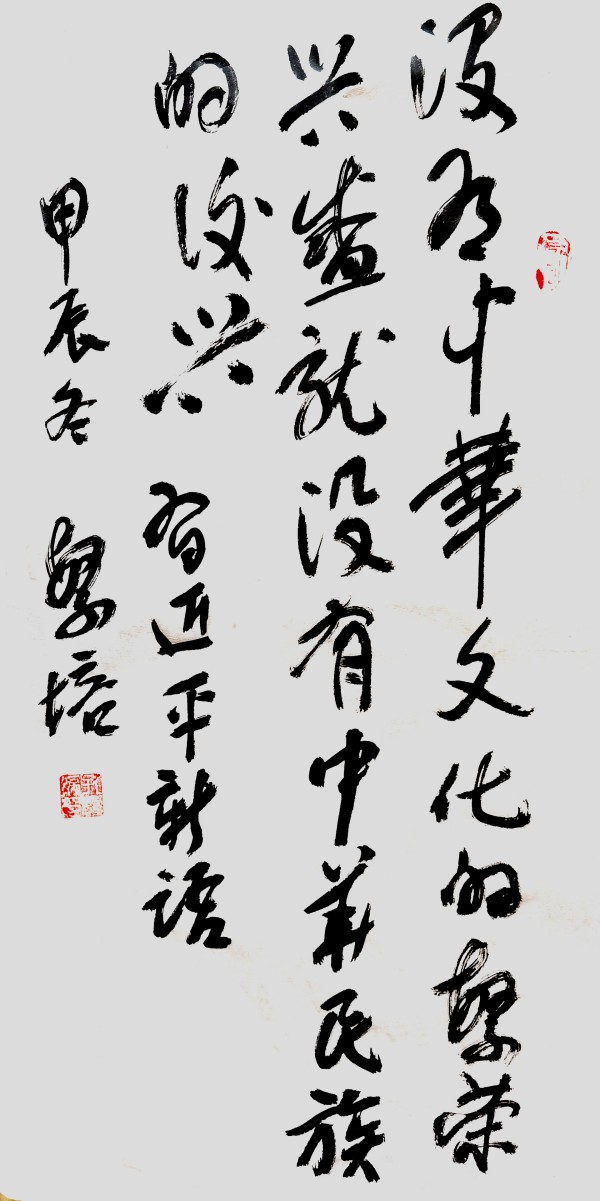 没有中華文化的繁荣
兴盛就没有中華民族
的復兴 習近平新語
甲辰冬 培